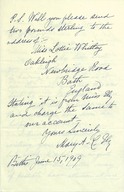 P.S. Will you please send
two pounds sterling to the
address:-
Miss Lottie Whitley
Oakleigh
Newbridge Road
Bath
England
Stating it is from
and charge the same to
our account.
Yours Sincerely
Mary
Bath June 15, 1949